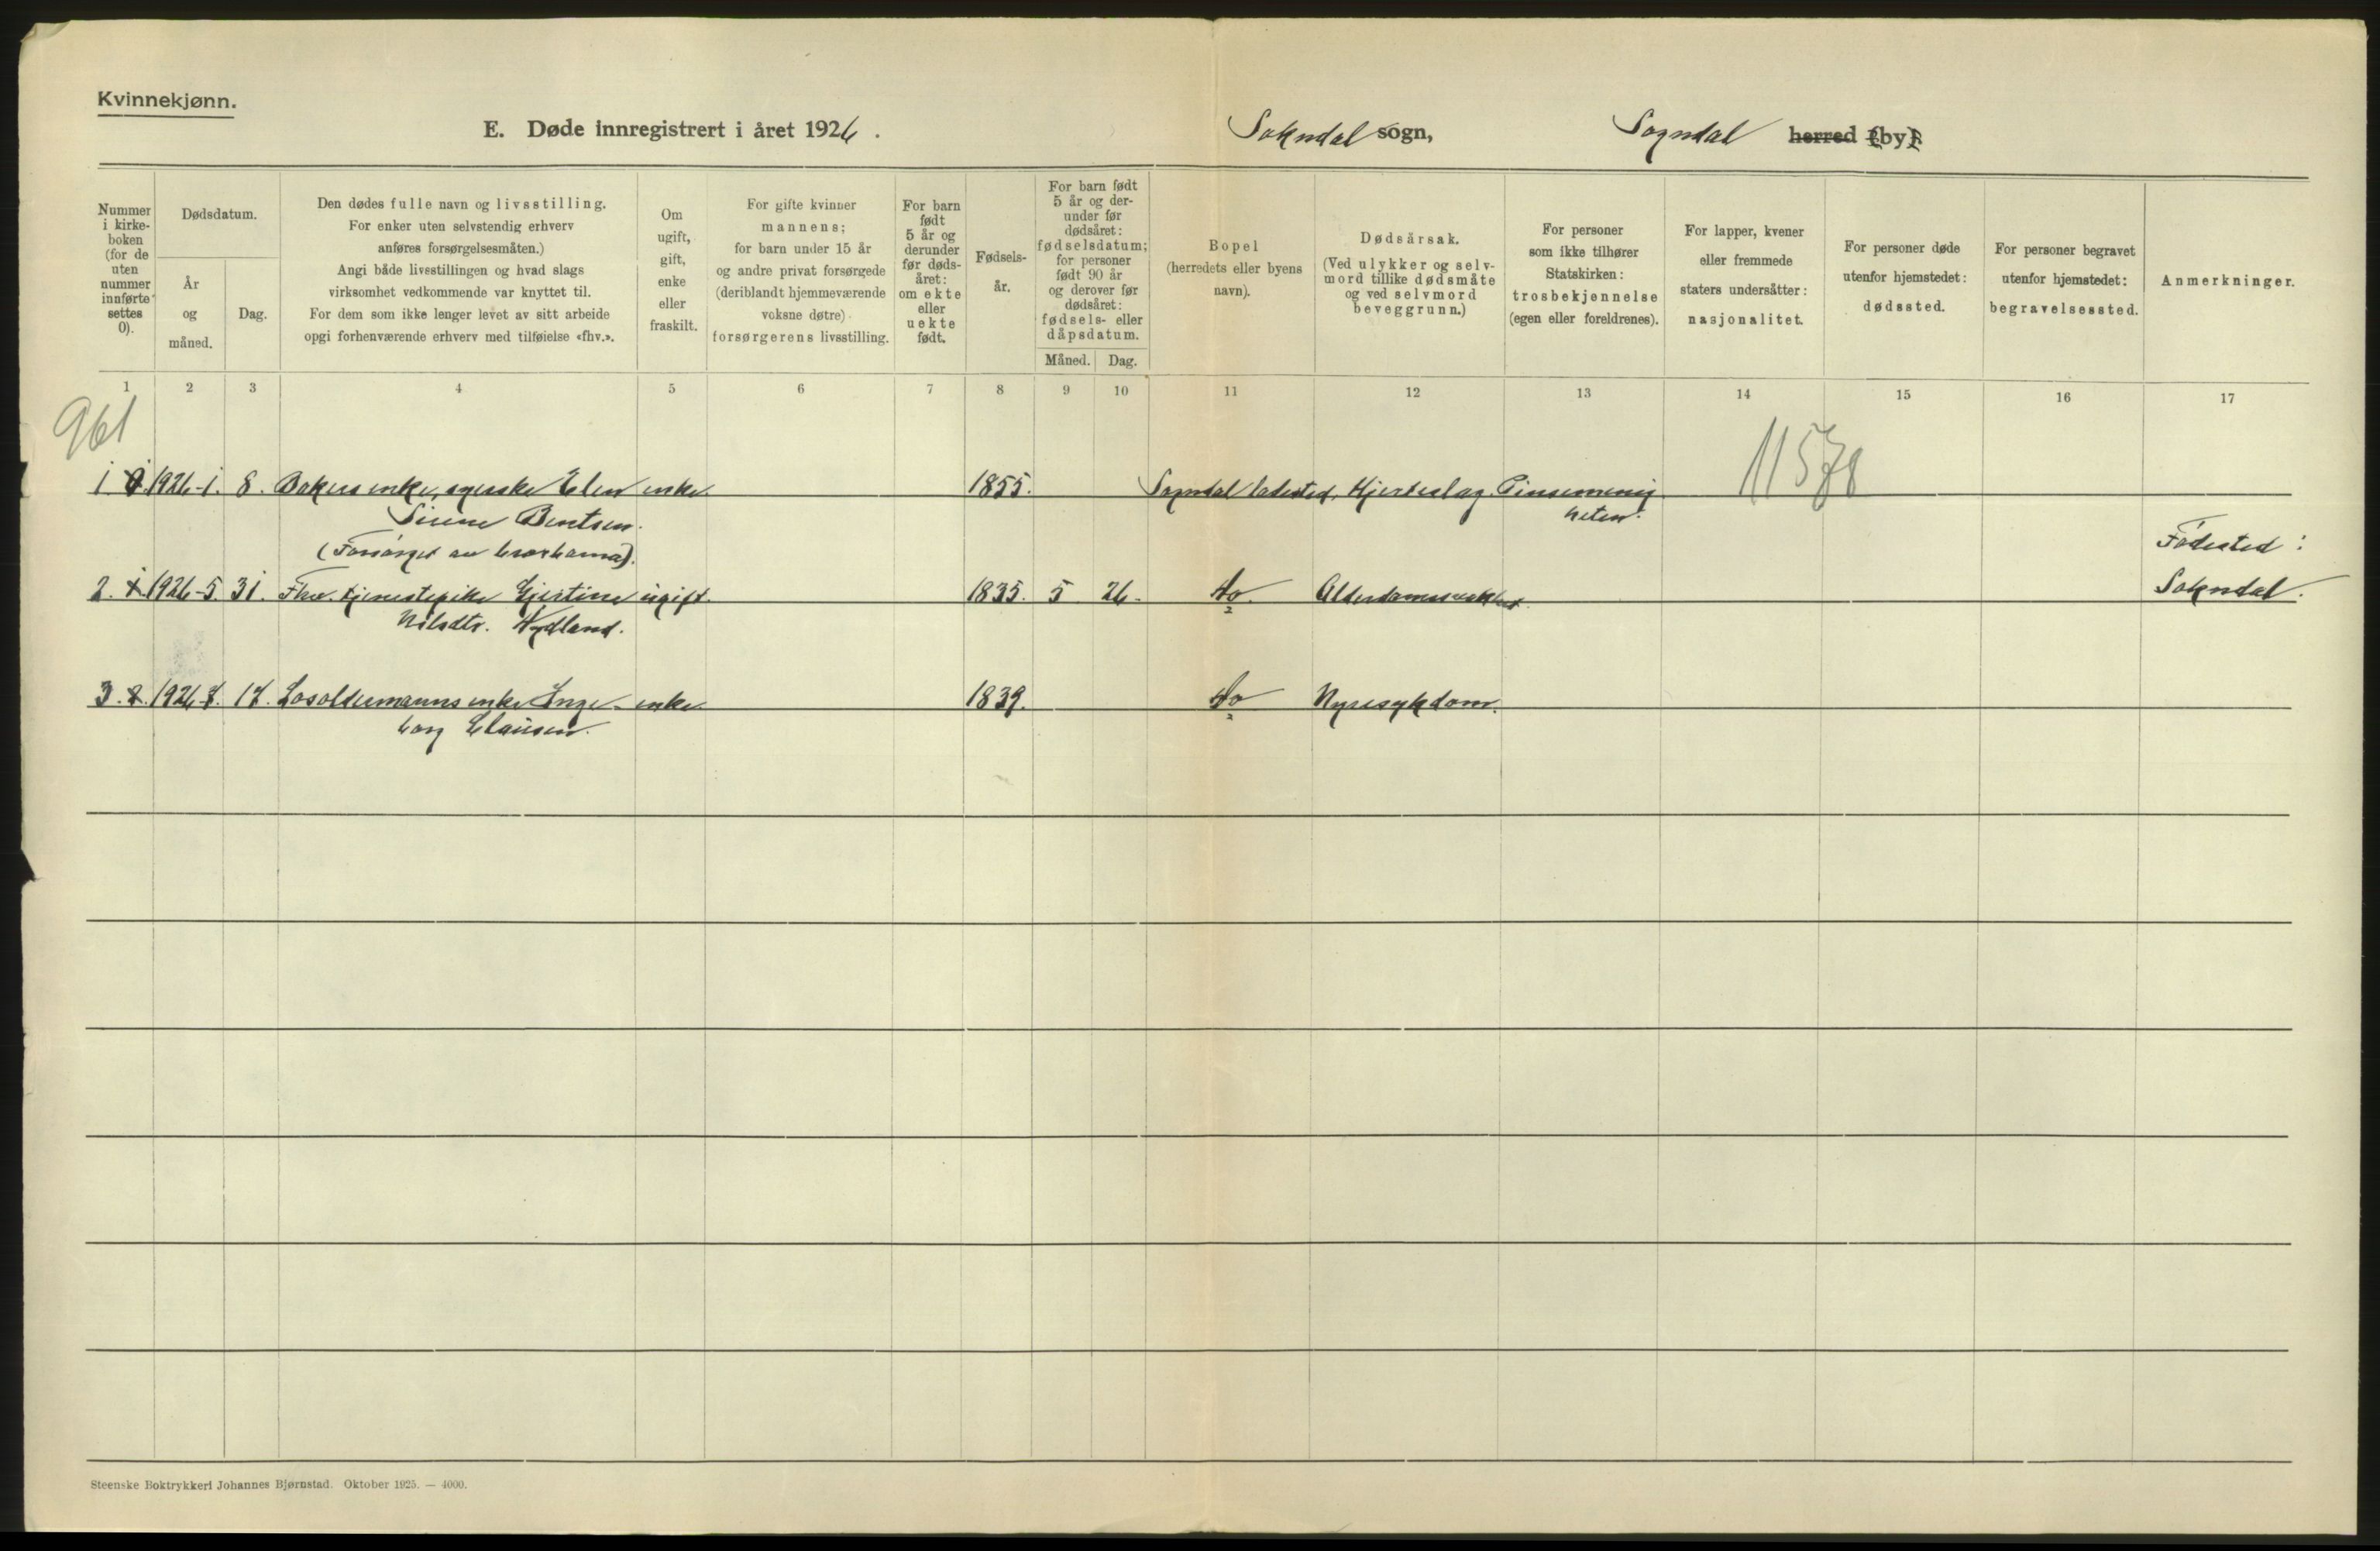 Kvinnekjønn.
E. Døde innregistrert i året 1926.
Sokndal sogn,
Sogndal herred (by).
Nummer
i kirke-
boken
(for de
uten
nummer
innførte
settes
0).
Dødsdatum.
År
og
måned.
Dag.
Den dødes fulle navn og livsstilling.
For enker uten selvstendig erhverv
anføres forsørgelsesmåten.)
Angi både livsstillingen og hvad slags
virksomhet vedkommende var knyttet til.
For dem som ikke lenger levet av sitt arbeide
opgi forhenværende erhverv med tilføielse «fhv.».
Om
ugift,
gift,
enke
eller
fraskilt.
For gifte kvinner
mannens;
for barn under 15 år
og andre privat forsørgede
(deriblandt hjemmeværende
voksne døtre)
forsørgerens livsstilling.
For barn
født
5 år og
derunder
før døds-
året:
om ekte
eller
uekte
født.
Fødsels-
år.
For barn født
5 år og der-
under før
dødsåret:
fødselsdatum;
for personer
født 90 år
og derover før
dødsåret:
fødsels- eller
dåpsdatum.
Måned. Dag.
Bopel
(herredets eller byens
navn).
Dødsårsak.
(Ved ulykker og selv-
mord tillike dødsmåte
og ved selvmord
beveggrunn.)
For personer
som ikke tilhører
Statskirken:
trosbekjennelse
(egen eller foreldrenes).
For lapper, kvener
eller fremmede
staters undersåtter:
nasjonalitet.
For personer døde
utenfor hjemstedet:
dødssted.
For personer begravet
utenfor hjemstedet:
begravelsessted.
Anmerkninger.
1 2 3 4 5 6 7 8 9 10 11 12 13 14 15 16 17
961
11578
1. 1926-1. 8. Bakers enke, Elen enke. 1855. Sogndal ladested. Hjerteslag. Pinsemenig
Sirene Bentsen. heten.
(Forsørget av
Fødested:
2. 1926-5. 31. Fhv. tjenestepike Gjertine ugift. 1835. 5 26. do Alderdomssvakhet. Sokndal.
Nilsdtr. Hydland.
3. 1926 17. Losoldermanns enke Inge- enke 1839. do Nyresykdom.
borg Clausen.
Steenske Boktrykkeri Johannes Bjørnstad. Oktober 1925. — 4000.